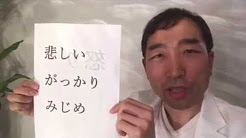 悲しい
がっかり
みじめ